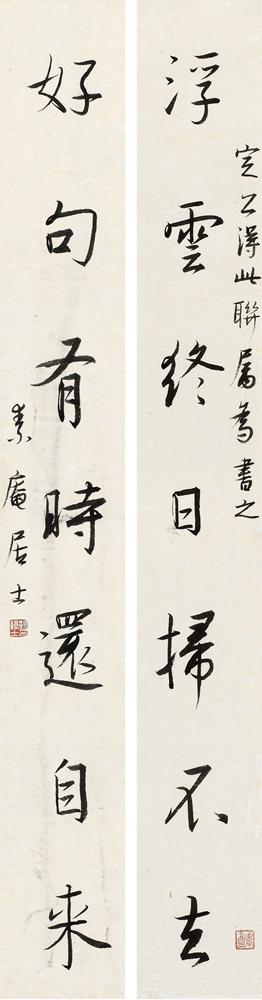 浮雲終日掃不去
定公得此聯屬為書之
好句有時還自来
素庵居士